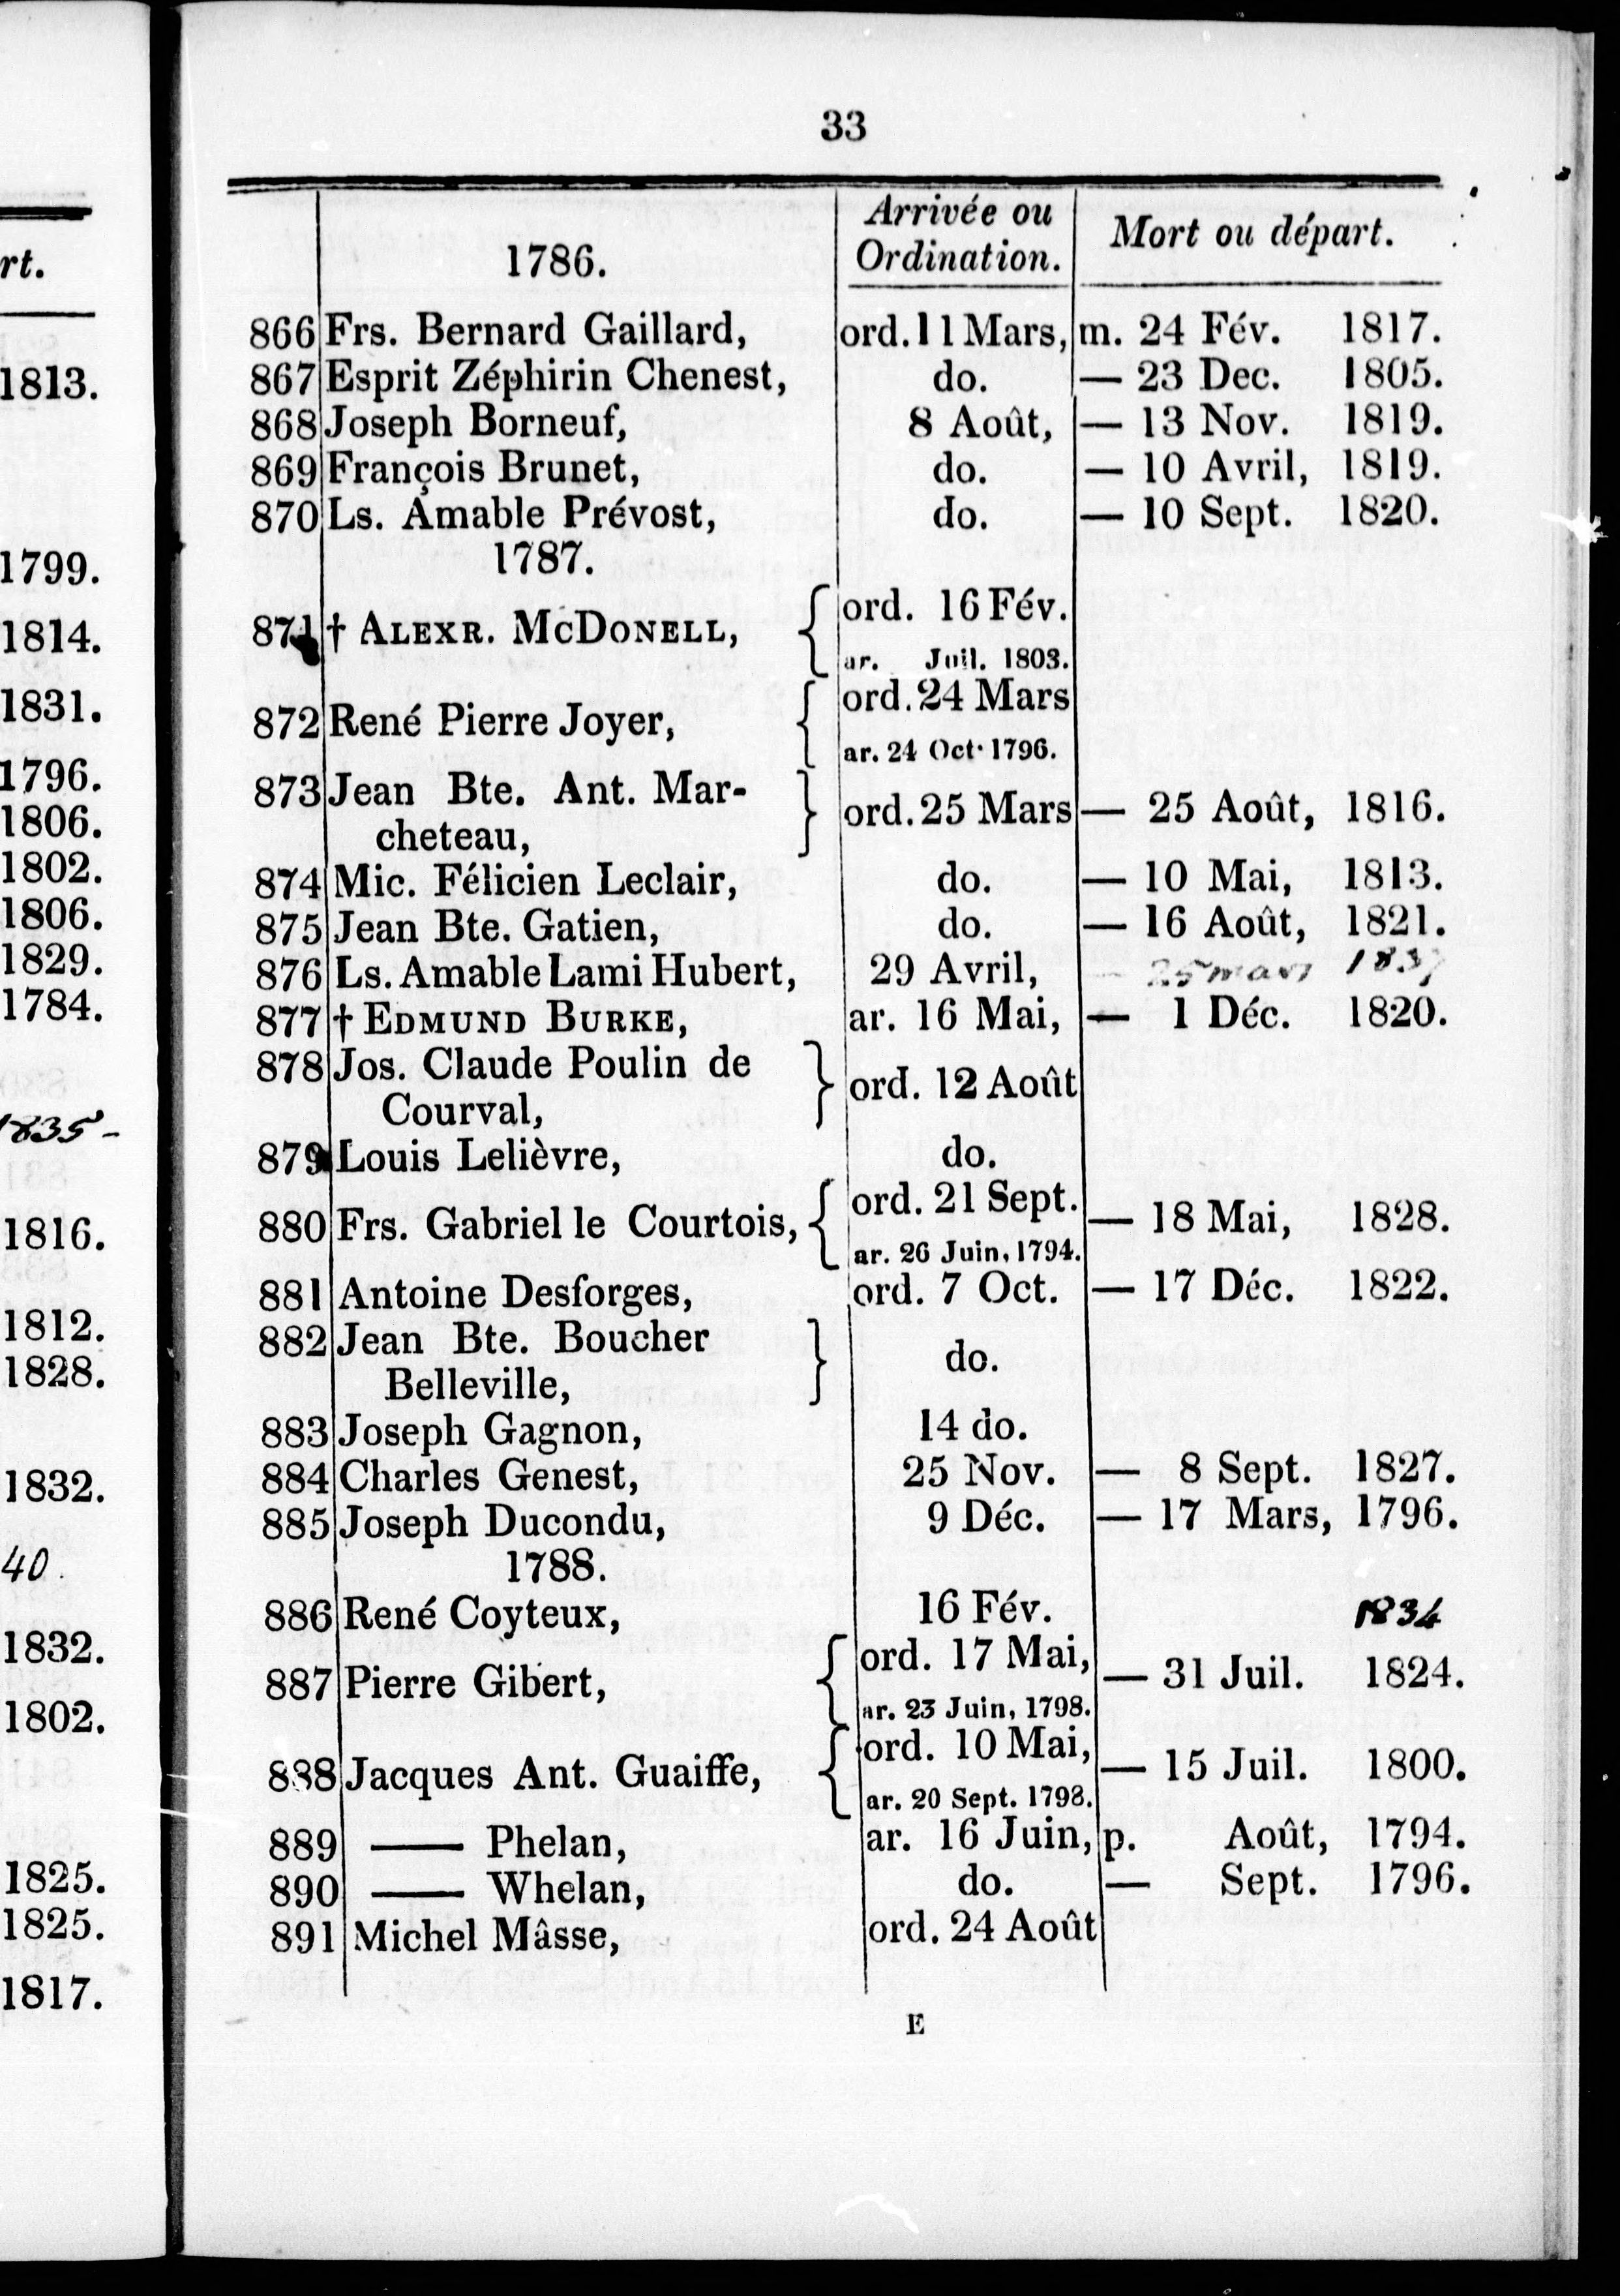 33
Arrivée ou
Ordination.
Mort ou départ.
1786.
866 Frs. Bernard Gaillard, ord. 11 Mars, m. 24 Fév. 1817.
867 Esprit Zéphirin Chenest, do. — 23 Dec. 1805.
868 Joseph Borneuf, 8 Août, — 13 Nov. 1819.
869 François Brunet, do. — 10 Avril, 1819.
870 Ls. Amable Prévost, do. — 10 Sept. 1820.
1787.
871 † ALEXR. MCDONELL, { ord. 16 Fév.
ar. Juil. 1803.
872 René Pierre Joyer, { ord. 24 Mars
ar. 24 Oct. 1796.
873 Jean Bte. Ant. Mar-
cheteau, } ord. 25 Mars — 25 Août, 1816.
874 Mic. Félicien Leclair, do. — 10 Mai, 1813.
875 Jean Bte. Gatien, do. — 16 Août, 1821.
876 Ls. Amable Lami Hubert, 29 Avril, — 25 mars
877 † EDMUND BURKE, ar. 16 Mai, — 1 Déc. 1820.
878 Jos. Claude Poulin de
Courval, } ord. 12 Août
879 Louis Lelièvre, do.
880 Frs. Gabriel le Courtois, { ord. 21 Sept. — 18 Mai, 1828.
ar. 26 Juin, 1794.
881 Antoine Desforges, ord. 7 Oct. — 17 Déc. 1822.
882 Jean Bte. Boucher
Belleville, } do.
883 Joseph Gagnon, 14 do.
884 Charles Genest, 25 Nov. — 8 Sept. 1827.
885 Joseph Ducondu, 9 Déc. — 17 Mars, 1796.
1788.
886 René Coyteux, 16 Fév. 1834
887 Pierre Gibert, { ord. 17 Mai, — 31 Juil. 1824.
ar. 23 Juin, 1798.
888 Jacques Ant. Guaiffe, { ord. 10 Mai, — 15 Juil. 1800.
ar. 20 Sept. 1798.
889 —— Phelan, ar. 16 Juin, p. Août, 1794.
890 —— Whelan, do. — Sept. 1796.
891 Michel Mâsse, ord. 24 Août
E
rt.
1813.
1799.
1814.
1831.
1796.
1806.
1802.
1806.
1829.
1784.
1835-
1816.
1812.
1828.
1832.
40.
1832.
1802.
1825.
1825.
1817.